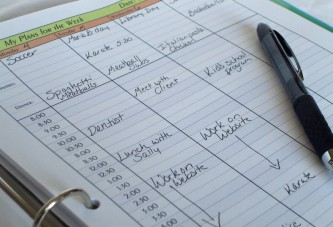 My Plans for the Week
Soccer
Karate 5:30
Library Day
Spaghetti/
Meatballs
Meatball
Subs
Italian
Dinner
8:00
8:30
9:00
9:30
10:00
10:30
11:00
11:30
12:00
12:30
1:00
1:30
2:00
2:30
3:00
Dentist
Meet with
Client
Kid's School
program
Lunch with
Sally
Work on
Website
Work on
Website
Karate